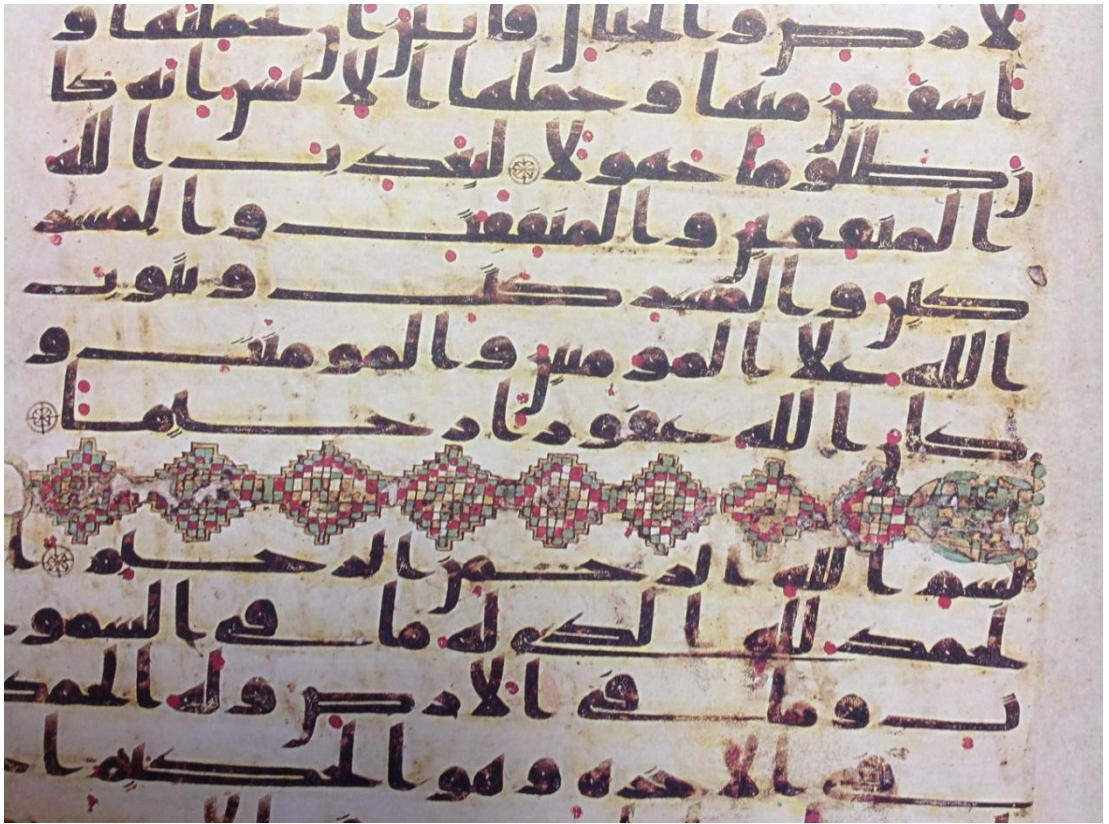 لارض والجبال فابين ان يحملنها و
اشفقن منها وحملها الانسن انه كا
ن ظلوما جهولا ليعذب الله
المنفقين والمنفقت والمشر
كين والمشركت ويتوب
الله على المومنين والمومنت و
كان الله غفورا رحيما
بسم الله الرحمن الرحيم ا
لحمد لله الذي له ما في السمو
ت وما في الارض وله الحمد
في الاخرة وهو الحكيم ا